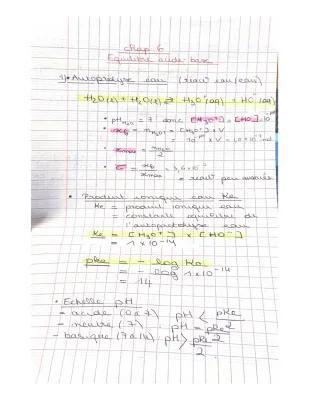 Chap 6
Equilibre acide-base
1) • Autoprotolyse eau (réact° eau/eau)
H₂O(l) + H₂O(l) ⇌ H₃O⁺(aq) + HO⁻(aq)
• pH H₂O = 7 donc [H₃O⁺] = [HO⁻] = 10⁻ᵖᴴ
• xf = n H₃O⁺ = [H₃O⁺] x V
= 10⁻ᵖᴴ x V = 1,0 x 10⁻⁷ mol
• xmax =
• = xf / xmax =
= réact° peu avancée
• Produit ionique eau Ke
Ke = produit ionique eau
= constante equilibre de
l'autoprotolyse eau
Ke = [H₃O⁺] x [HO⁻]
= 1 x 10⁻¹⁴
pKe = - log Ke
= - log 1x10⁻¹⁴
= 14
• Echelle pH
- acide (0 à 7) pH < pKe / 2
- neutre (7) pH = pKe / 2
- basique (7 à 14) pH > pKe / 2